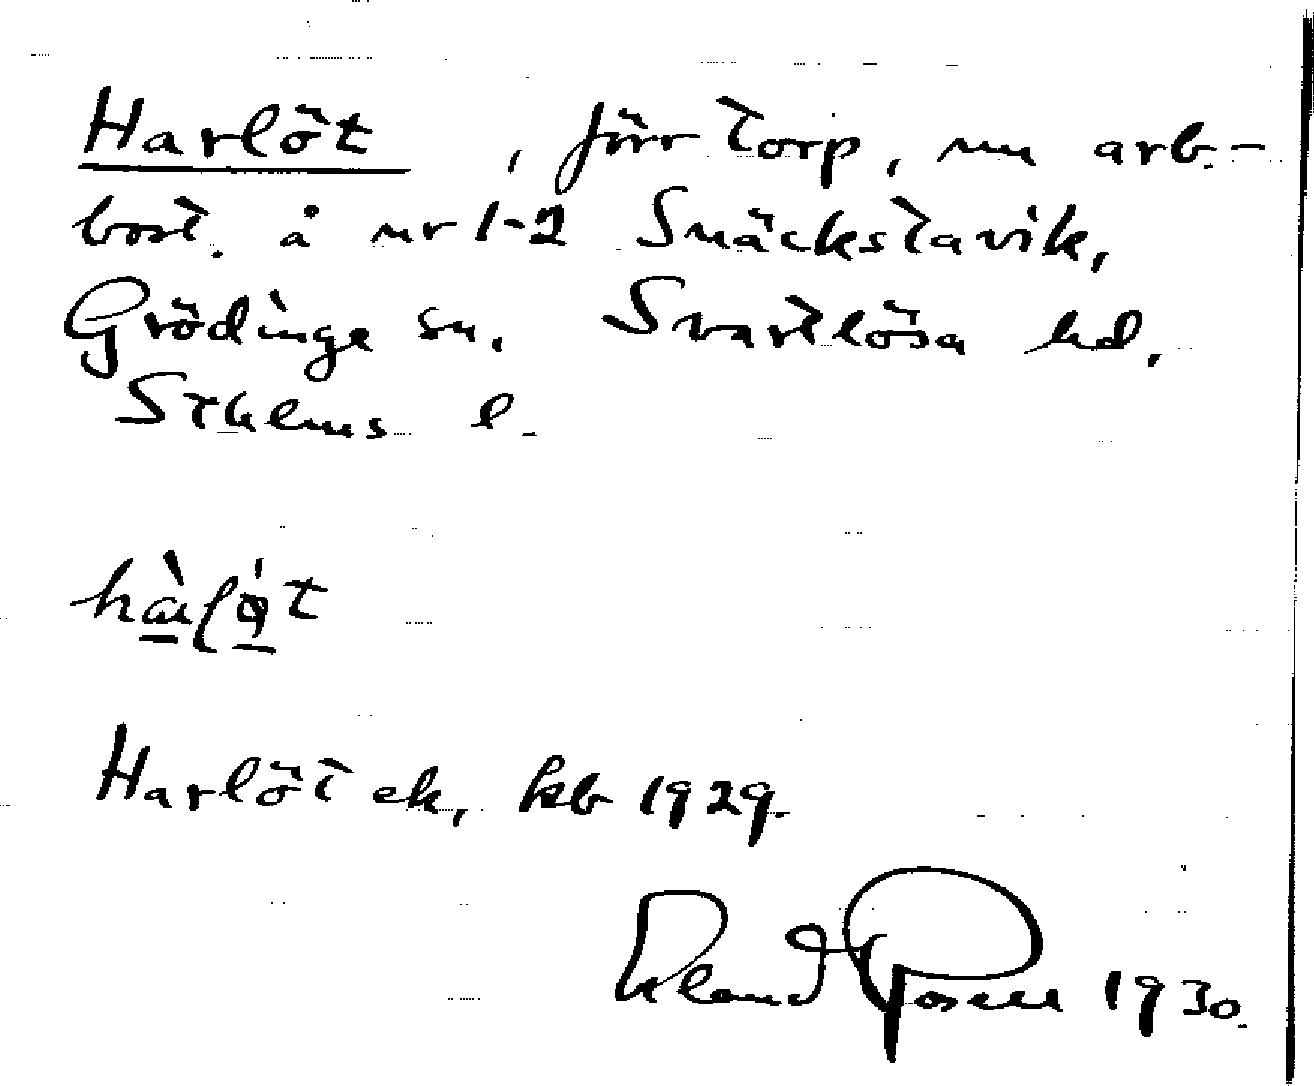 Harlöt, förr torp, nu arb.-
bost. å nr 1-2 Snäckstavik,
Grödinge sn, Svartlösa hd,
Sthlms l.
Harlöt ek, kb 1929.
1930.